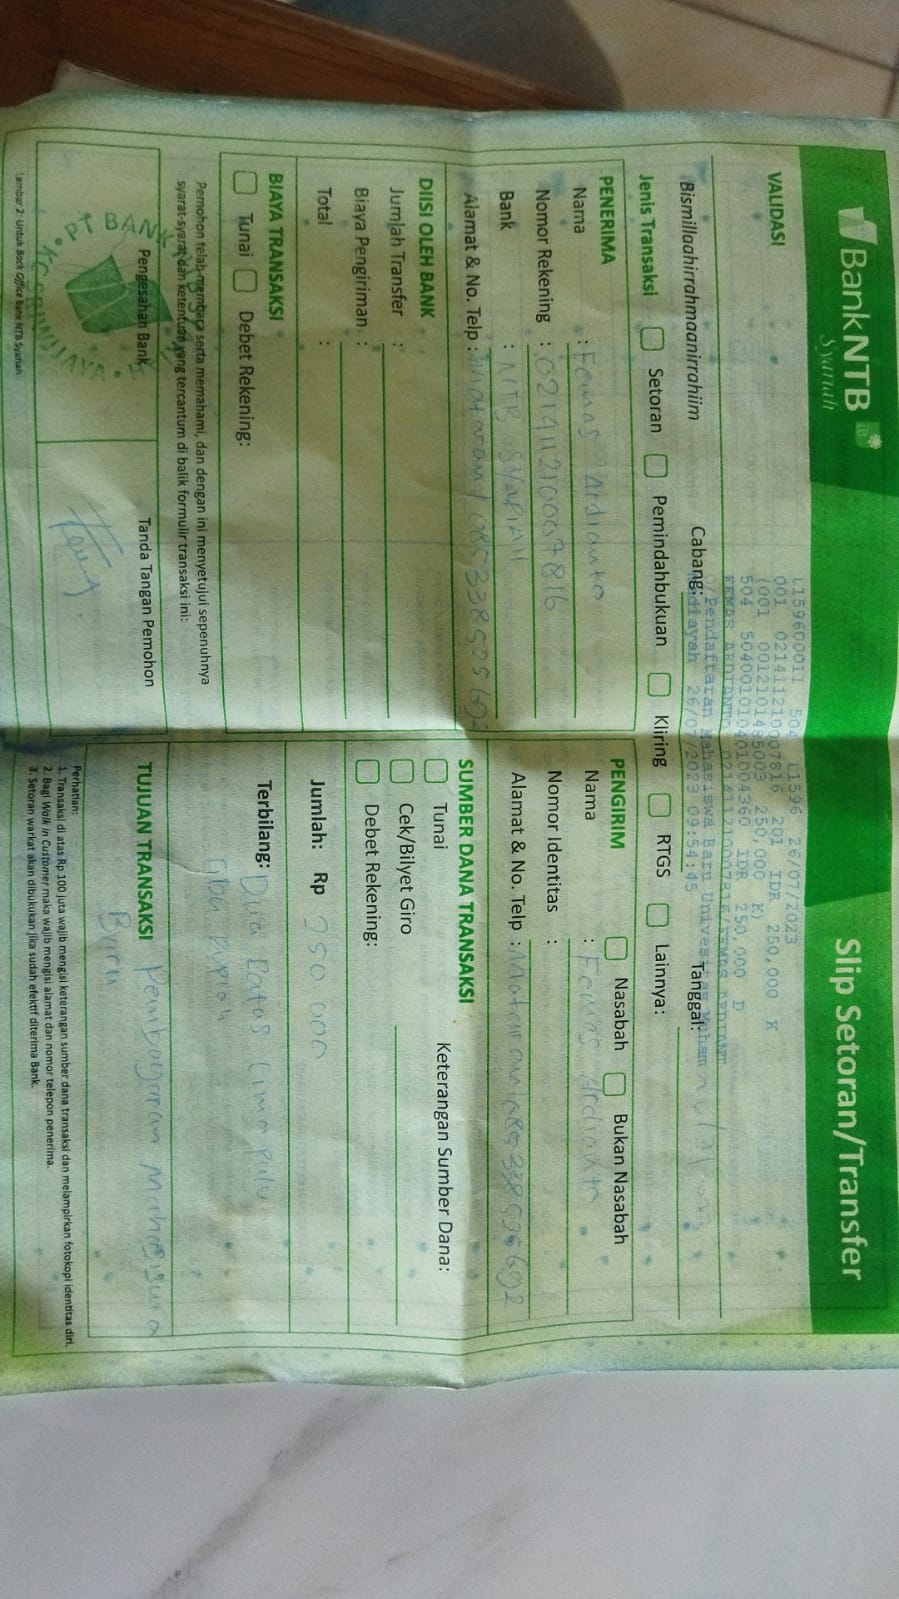 BankNTB
Syariah
Slip Setoran/Transfer
VALIDASI
L159600011 504 L1596 26/07/2023
001 02141121007816 201 IDR 250,000 K
(001 0012101485003 250,000 K)
504 504001010401004360 IDR 250,000 D
FEMAS ARDIANTO 021411210007816/FEMAS ARDIANT
Pendaftaran Mahasiswa Baru Univesitas Muham
adiayah 26/07/2023 09:54:45
Bismillaahirrahmaanirrahiim
Cabang:
Tanggal:
Jenis Transaksi Setoran Pemindahbukuan Kliring RTGS Lainnya:
PENERIMA
Nama : Femas Ardianto
Nomor Rekening : 021411210007816
Bank : NTB SYARIAH
Alamat & No. Telp : Mataram / 085338525692
PENGIRIM Nasabah Bukan Nasabah
Nama : Femas Ardianto
Nomor Identitas :
Alamat & No. Telp : Mataram / 085338525692
DIISI OLEH BANK
Jumlah Transfer :
Biaya Pengiriman :
Total :
SUMBER DANA TRANSAKSI
Tunai Keterangan Sumber Dana:
Cek/Bilyet Giro
Debet Rekening:
BIAYA TRANSAKSI
Tunai Debet Rekening:
Jumlah: Rp 250.000
Terbilang: Dua Ratus Lima puluh
ribu rupiah
Pemohon telah membaca serta memahami, dan dengan ini menyetujui sepenuhnya
syarat-syarat dan ketentuan yang tercantum di balik formulir transaksi ini:
Pengesahan Bank
PT BANK
Tanda Tangan Pemohon
TUJUAN TRANSAKSI Pembayaran Mahasiswa
Baru
Perhatian:
1. Transaksi di atas Rp 100 juta wajib mengisi keterangan sumber dana transaksi dan melampirkan fotokopi identitas diri.
2. Bagi Walk in Customer maka wajib mengisi alamat dan nomor telepon penerima.
3. Setoran warkat akan dibukukan jika sudah efektif diterima Bank.
Lembar 2: Untuk Back Office Bank NTB Syariah